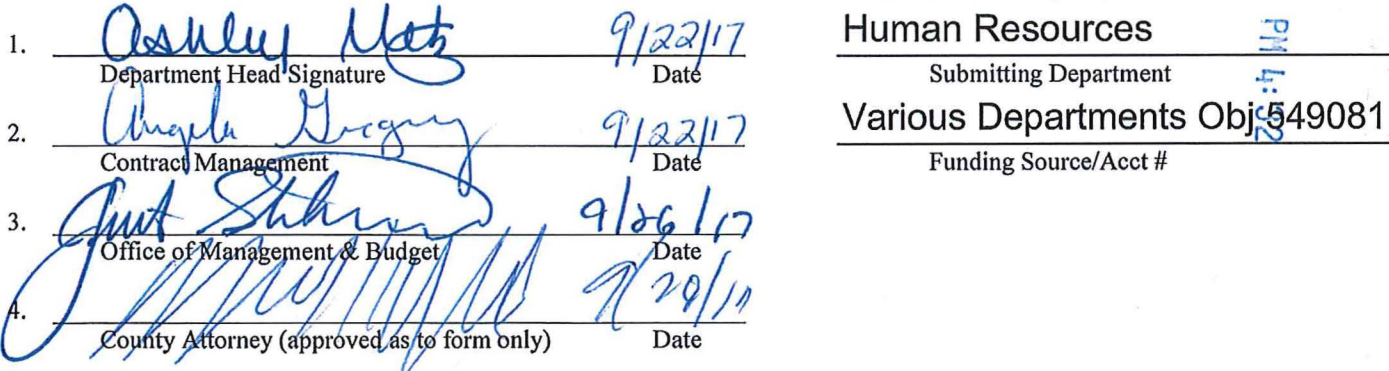 1. Ashley Metz 9/22/17
Department Head Signature Date
2. Angela Gregory 9/22/17
Contract Management Date
3. 9/26/17
Office of Management & Budget Date
4.
County Attorney (approved as to form only) Date
Human Resources
Submitting Department
Various Departments Obj 549081
Funding Source/Acct #
PM 4:32